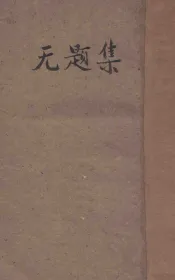 无题集